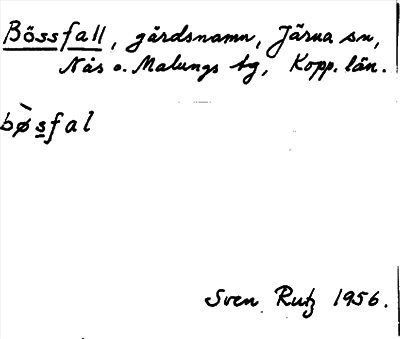 Bössfall, gårdsnamn, Järna sn,
Nås o. Malungs tg, Kopp. län.
bø̀s̲fal
Sven Rutz 1956.